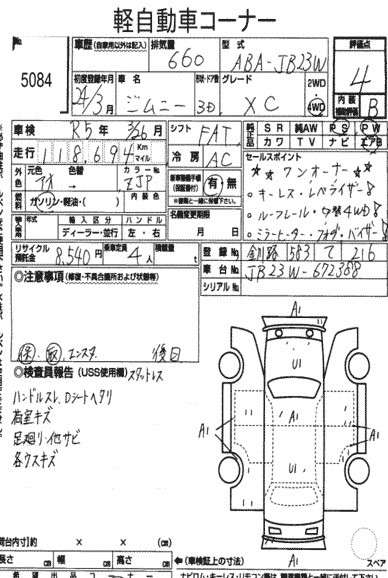 軽自動車コーナー
No.
5084
車歴 (自家用以外は記入)
排気量
660
型式
ABA-JB23W
評価点
4
初度登録年月
24/3月
車名
ジムニー
ドア・形状
3D
グレード
XC
2WD
4WD
内装 補助評価
B
車検 R5年3/26月
シフト FAT
純正 SR 純AW PS PW
カワ TV ナビ エアB
走行 118,694 Km マイル
冷房 AC
セールスポイント
☆☆ワンオーナー☆
外色 元色 アオ→ 色替 カラーNo. ZJP
有・無
キーレス・レベライザー!
燃料 ガソリン・軽油・( ) 内装色
ルーフレール・切替4WD!
年式 輸入区分 ハンドル
ディーラー・並行 左・右
名義変更期限
月 日
ミラーヒーター・フォグ・バイザー!
リサイクル預託金 8,540円
乗車定員 4人
積載量 kg
登録No.
583 て 216
車台No. JB23W-672388
シリアルNo.
◎注意事項 (修復・不具合箇所および状態等)
保、取、エンスタ 後日
◎検査員報告 (USS使用欄) スタットレス
ハンドルスレ、Dシートヘタリ
荷室キズ
足廻り・他サビ
各ウスキズ
A1
U1
A1
A1
A1
U1
A1
荷台内寸)約 × × (cm)
長さ cm 幅 cm 高さ cm
←(車検証上の寸法)
スペア